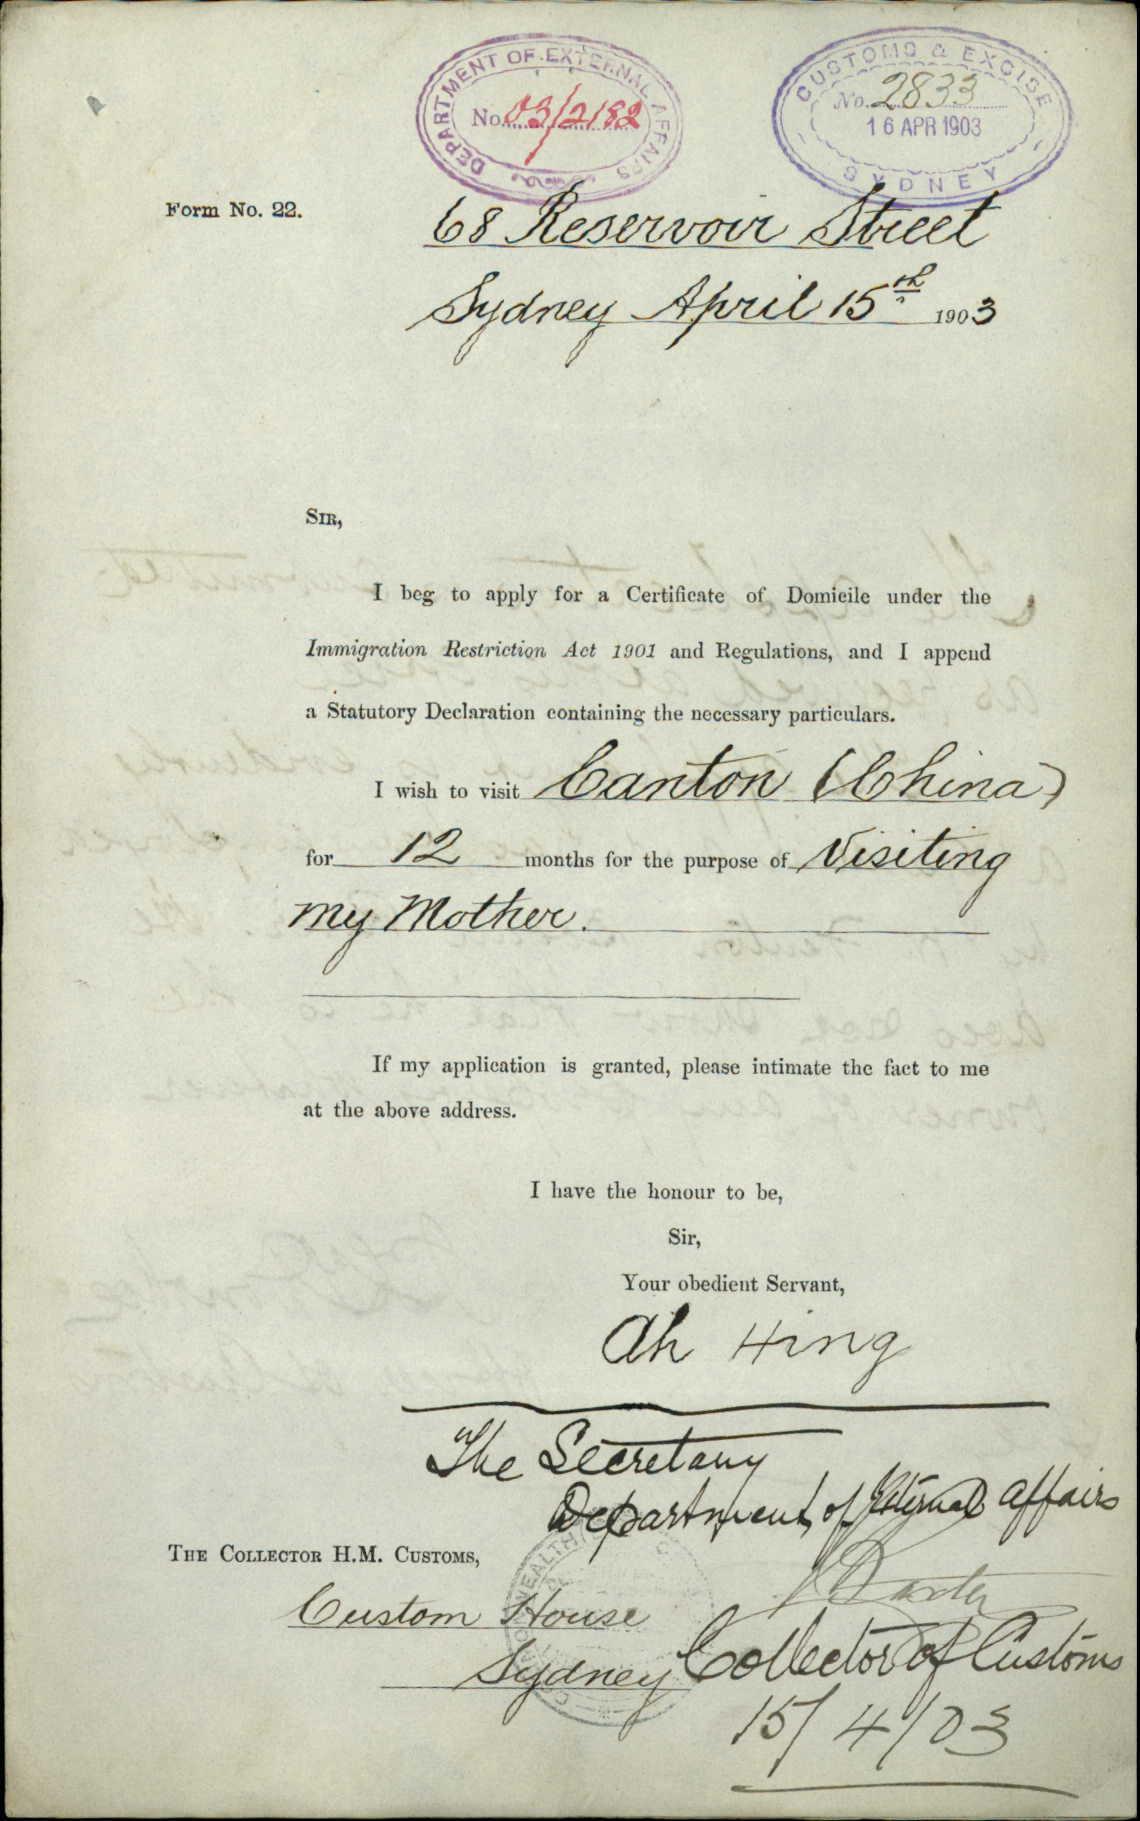 DEPARTMENT OF EXTERNAL AFFAIRS
No. 03/2182
CUSTOMS & EXCISE
No. 2833
16 APR 1903
SYDNEY
Form No. 22.
68 Reservoir Street
Sydney April 15th 1903
SIR,
I beg to apply for a Certificate of Domicile under the
Immigration Restriction Act 1901 and Regulations, and I append
a Statutory Declaration containing the necessary particulars.
I wish to visit Canton (China)
for 12 months for the purpose of Visiting
my Mother.
If my application is granted, please intimate the fact to me
at the above address.
I have the honour to be,
Sir,
Your obedient Servant,
Ah Hing
The Secretary
Department of External Affairs
THE COLLECTOR H.M. CUSTOMS,
Custom House
Sydney
Collector of Customs
15/4/03